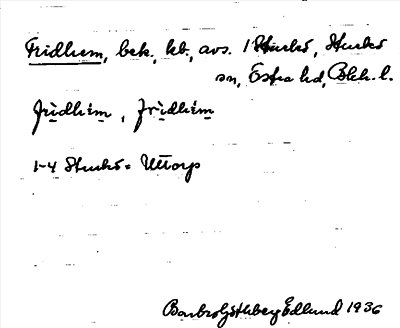 Fridhem, bek., kb., avs. 1 Sturkö, Sturkö
sn, Östra hd, Blek. l.
fridhem, fridhem
1-4 Sturkö = Uttorp
Barbro Göthberg Edlund 1936